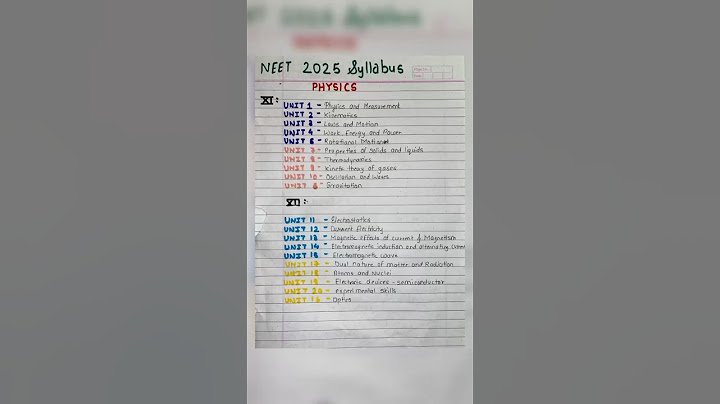 NEET 2025 Syllabus
PHYSICS
XI:
UNIT 1 - Physics and Measurement
UNIT 2 - Kinematics
UNIT 3 - Laws and Motion
UNIT 4 - Work, Energy and Power
UNIT 5 - Rotational Motion
UNIT 7 - Properties of solids and liquids
UNIT 8 - Thermodynamics
UNIT 9 - Kinetic theory of gases
UNIT 10 - Oscillation and Waves
UNIT 6 - Gravitation
XII:
UNIT 11 - Electrostatics
UNIT 12 - Current Electricity
UNIT 13 - Magnetic effects of current & Magnetism
UNIT 14 - Electromagnetic induction and alternating
UNIT 15 - Electromagnetic wave
UNIT 17 - Dual nature of matter and Radiation
UNIT 18 - Atoms and Nuclei
UNIT 19 - Electronic devices - semiconductor
UNIT 20 - experimental skills
UNIT 16 - Optics